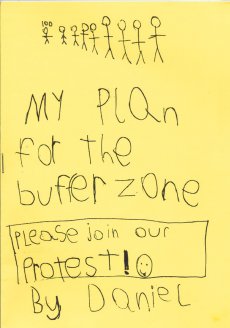 100
MY PLan
for the
buffer zone
PLease join our
Protest!
By DanieL